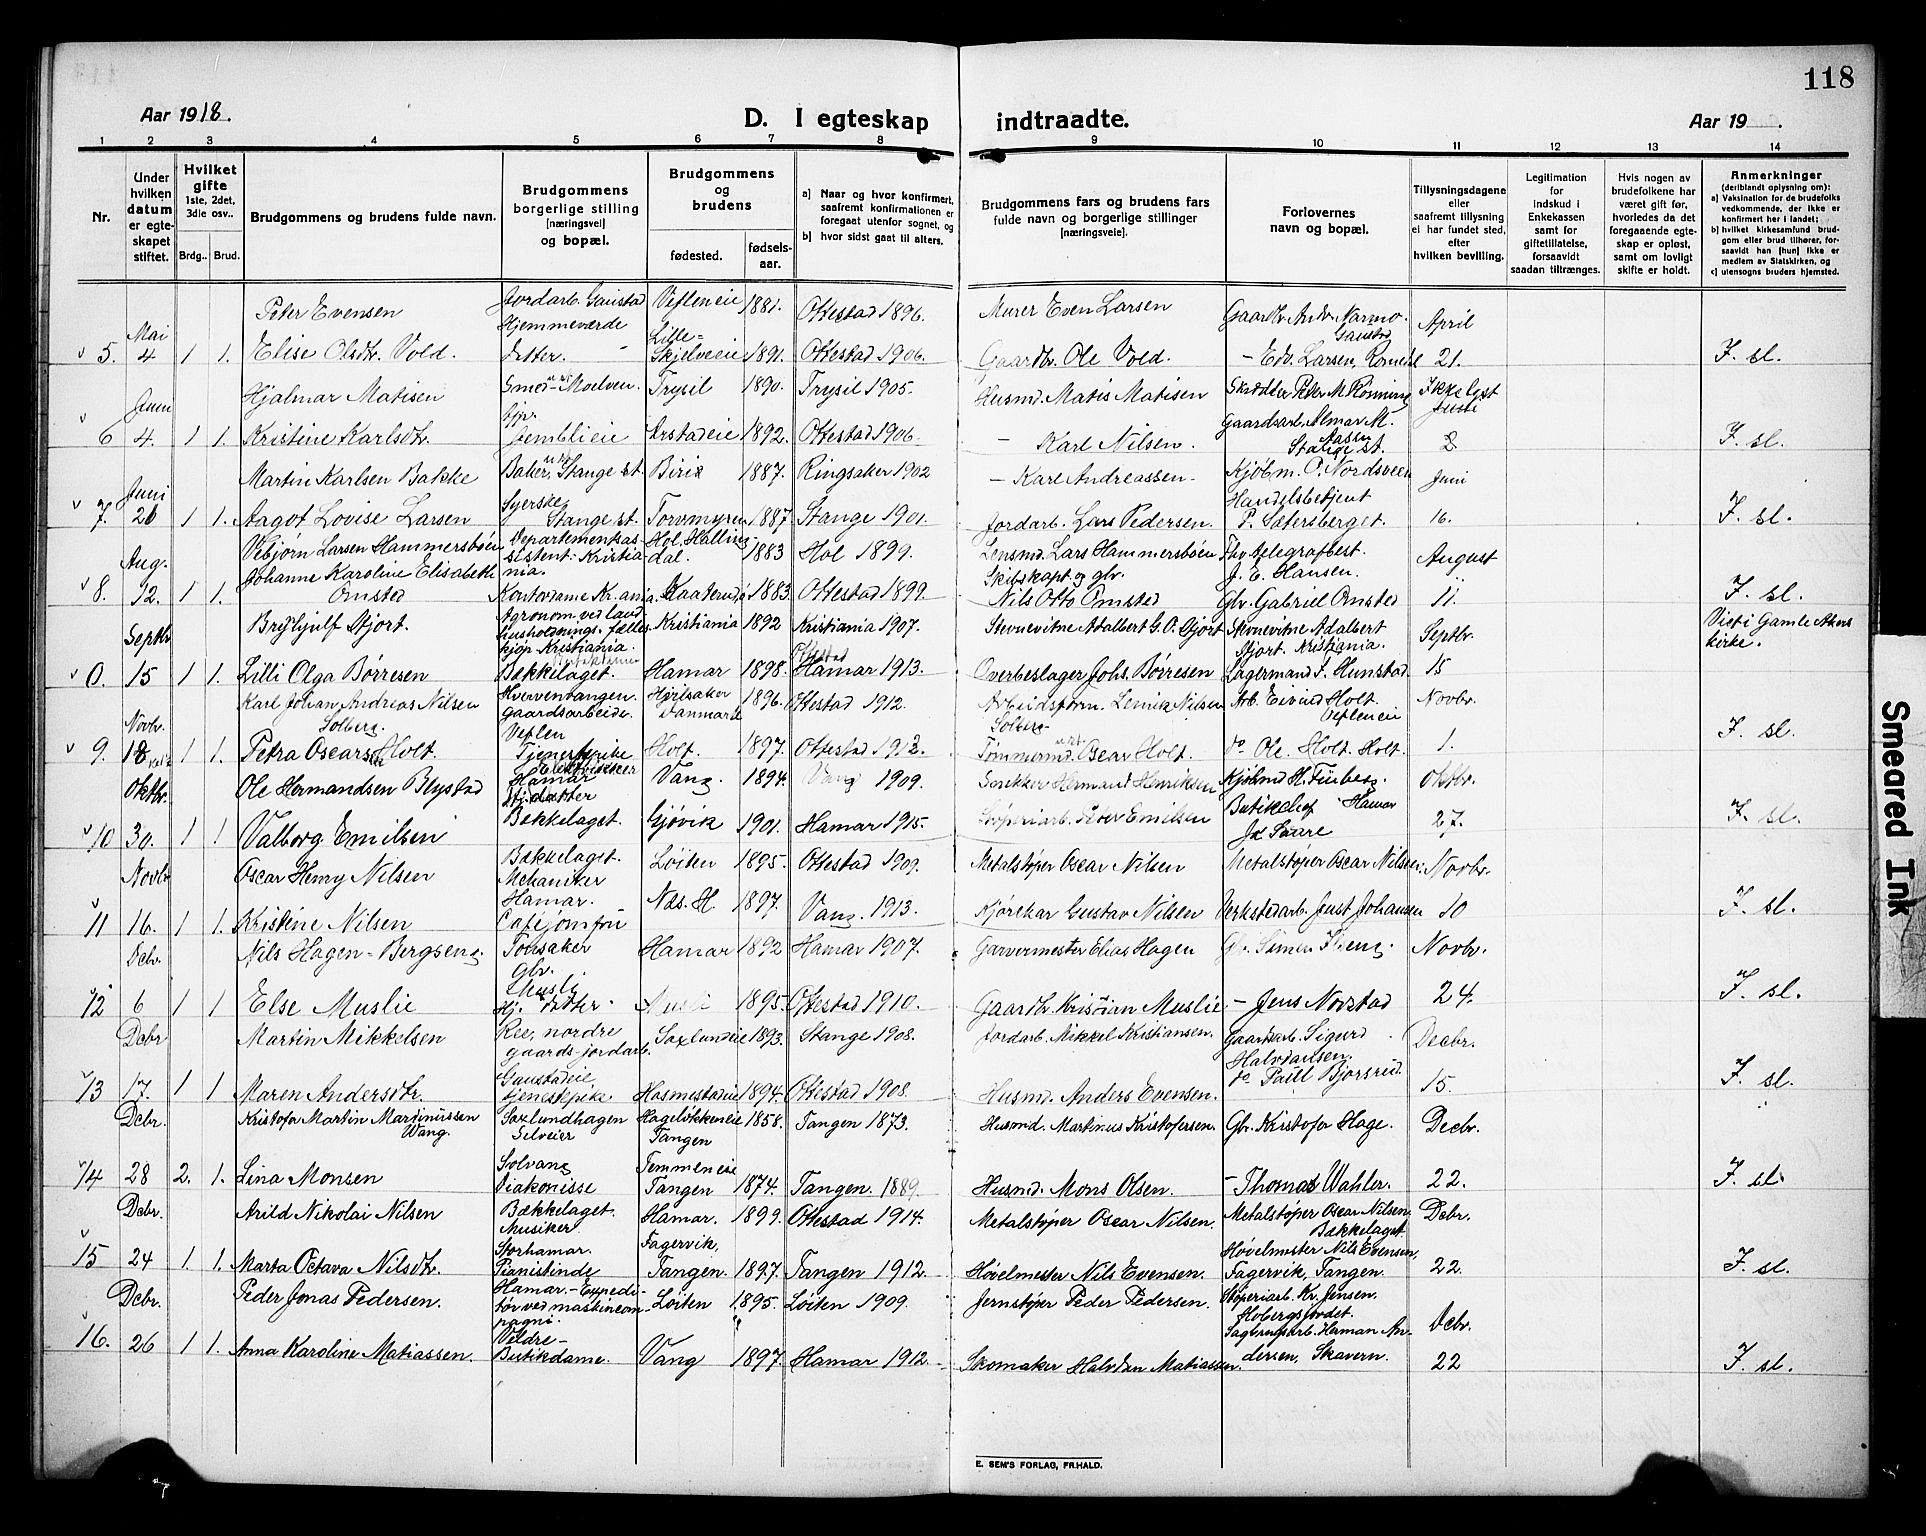 118
Aar 1918.
D. I egteskap indtraadte.
Aar 19 .
1 2 3 4 5 6 7 8 9 10 11 12 13 14
Nr.
Under hvilken datum er egteskapet stiftet.
Hvilket gifte 1ste, 2det, 3die osv..
Brdg.. Brud.
Brudgommens og brudens fulde navn.
Brudgommens borgerlige stilling (næringsvei) og bopæl.
Brudgommens og brudens
fødested. fødsels-aar.
a) Naar og hvor konfirmert, saafremt konfirmationen er foregaat utenfor sognet, og
b) hvor sidst gaat til alters.
Brudgommens fars og brudens fars fulde navn og borgerlige stillinger (næringsveie).
Forlovernes navn og bopæl.
Tillysningsdagene eller saafremt tillysning ei har fundet sted, efter hvilken bevilling.
Legitimation for indskud i Enkekassen samt for giftetillatelse, forsaavidt saadan tiltrænges.
Hvis nogen av brudefolkene har været gift før, hvorledes da det foregaaende egteskap er opløst, samt om lovligt skifte er holdt.
Anmerkninger (deriblandt oplysning om):
a) Vaksination for de brudefolks vedkommende, der ikke er konfirmert her i landet;
b) hvilket kirkesamfund brudgom eller brud tilhører, forsaavidt han (hun) ikke er medlem av Statskirken, og
c) utensogns bruders hjemsted.
Peter Evensen Jordarb. Gaustad Vefleneie 1881. Ottestad 1896. Murer Even Larsen Gaardbr. Andr. Narmo Gaustad April
5. Mai 4 1 1. Elise Olsdtr. Vold. Hjemmeværde datter. Lille-Skjelveeie 1891. Ottestad 1906. Gaardbr. Ole Vold. - Edv. Larsen, Romedal 21. F. sl.
Hjalmar Matisen Smed Moelven. Trysil 1890. Trysil 1905. Husmd. Matis Matisen Skrædder Peter M. Rønning Ikke lyst
6 Juni 4. 1 1. Kristine Karlsdtr. Jemblieie Arstadeie 1892. Ottestad 1906. - Karl Nilsen. Gaardsarb. Almar M. Aasen Stange st. Juni 2 F. sl.
Martin Karlsen Bakke Baker, Stange st. Biri 1887. Ringsaker 1902 - Karl Andreassen. Kjøbm. O. Nordsveen Juni
7. Juni 20 1 1. Aagot Lovise Larsen Syerske Stange st. Torvmyren 1887 Stange 1901. Jordarb. Lars Pedersen. Handelsbetjent P. Sætersberget. 16. F. sl.
Vebjørn Larsen Hammersbøen Departementsassistent. Kristiania. Hol, Hallingdal. 1883 Hol 1899. Lensmd. Lars Hammersbøen Fhv. telegrafbest. J. E. Hansen. August
8. Aug. 12. 1 1. Johanne Karoline Elisabeth Omsted Kontordame Kr.ania. Kaaterud 1883. Ottestad 1899. Skibskapt. og gbr. Nils Otto Omsted Gbr. Gabriel Omsted 11. F. sl.
Brynjulf Hjort. Agronom ved landhusholdnings-fælleskjøp Kristiania. Kristiania 1892 Kristiania 1907. Stevnevitne Adalbert G. O. Hjort Stevnevitne Adalbert Hjort. Kristiania. Septbr. Viet i Gamle Akers kirke.
0. Septbr 15 1 1. Lilli Olga Børresen Bækkelaget. Hamar 1898. Ottestad Hamar 1913. Overbeslager Johs. Børresen Lagermand J. Hunstad 15
Karl Johan Andreas Nilsen Solberg. Hverventangen. Gaardsarbeider Hjelsaker Danmark 1896. Ottestad 1912. Arbeidsform. Nilsen Solberg Arb. Eivind Holt. Vefleneie Novbr.
9. Novbr. 18 1 1. Petra Oscarsdtr Holt. Veflen Tjenestepike Holt. 1897. Ottestad 1912. Tømmermd. Oscar Holt. do Ole Holt. Holt. 1. F. sl.
Ole Hermandsen Blystad Elektriker Hamar Vang. 1894. Vang 1909. Snekker Hermand Henriksen Kjøbmd H. Finberg. Hamar Oktbr.
10 Oktbr. 30. 1 1 Valborg Emilsen Hj. datter Bækkelaget. Gjøvik 1901. Hamar 1915. Støperiarb. Peter Emilsen Butikchef 27. F. sl.
Oscar Henry Nilsen Bækkelaget. Mekaniker Løiten 1895. Ottestad 1909. Metalstøper Oscar Nilsen Metalstøper Oscar Nilsen. Novbr.
11 Novbr 16. 1 1. Kristine Nilsen Hamar. Cafejomfru Næs. H. 1897. Vang. 1913. Kjørekar Gustav Nilsen Verkstedarb. Just Johansen 10 F. sl.
Nils Hagen-Bergseng. Torsaker Gbr. Hamar 1892 Hamar 1907. Garvermester Elias Hagen Gbr. Simen Novbr.
12 Dcbr. 6 1 1 Else Muslie Musli Hj. datter Musli 1895. Ottestad 1910. Gaardbr. Kristian Muslie - Jens Nordstad 24. F. sl.
Martin Mikkelsen Ree, nordre gaards-jordarb. Saxlundeie 1893. Stange 1908. Jordarb. Mikkel Kristiansen. Gaardsarb. Sigurd Halvdansen. Decbr.
13 Dcbr 17. 1 1 Maren Andersdtr. Gaustadeie, tjenestepike Hosmestadeie 1894. Ottestad 1908. Husmd. Anders Evensen. do Paul Bjørsrud 15. F. sl.
Kristofer Martin Martinussen Wang. Saxlundhagen Selveier Hageløkkeneie Tangen 1858. Tangen 1873. Husmd. Martinus Kristofersen. Gbr. Kristofer Hage. Decbr.
14 Dcbr. 28 2. 1. Lina Monsen Solvang Diakonisse Temmeneie Tangen 1874. Tangen 1889. Husmd. Mons Olsen. - Thomas Wahler. 22. F. sl.
Arild Nikolai Nilsen Bækkelaget. Musiker Hamar. 1899. Ottestad 1914. Metalstøper Oscar Nilsen. Metalstøper Oscar Nilsen. Bækkelaget Dcbr.
15 Dcbr. 24 1. 1. Marta Octava Nilsdtr. Storhamar. Pianistinde Fagervik, Tangen. 1897. Tangen 1912. Høvelmester Nils Evensen. Høvelmester Nils Evensen, Fagervik, Tangen. 22. F. sl.
Peder Jonas Pedersen. Hamar-Expeditør ved maskinkompagni. Løiten 1895. Løiten 1909. Jernstøper Peder Pedersen. Støperiarb. Kr. Jensen. Flobergsjordet. Dcbr.
16. Dcbr. 26 1 1. Anna Karoline Matiassen. Veldre- Butikdame. Vang 1897. Hamar 1912. Skomaker Halvdan Matiassen. Sagbrugsarb. Herman Andersen, Skavern. 22 F. sl.
E. SEM'S FORLAG, FR.HALD.
Smeared Ink